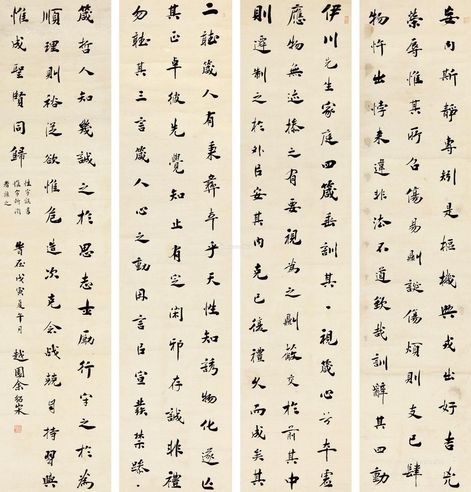 伊川先生家庭四箴垂訓其一視箴心兮本虛
應物無迹操之有要視為之則蔽交於前其中
則遷制之於外以安其內克己復禮久而成矣其
二聽箴人有秉彝本乎天性知誘物化遂亡
其正卓彼先覺知止有定閑邪存誠非禮
勿聽其三言箴人心之動因言以宣發禁躁
妄內斯靜專矧是樞機興戎出好吉凶
榮辱惟其所召傷易則誕傷煩則支己肆
物忤出悖來違非法不道欽哉訓辭其四動
箴哲人知幾誠之於思志士厲行守之於為
順理則裕從欲惟危造次克念戰兢自持習與
惟成聖賢同歸
性字誤書
惟字
注之
戊寅夏午月 越園余紹宋